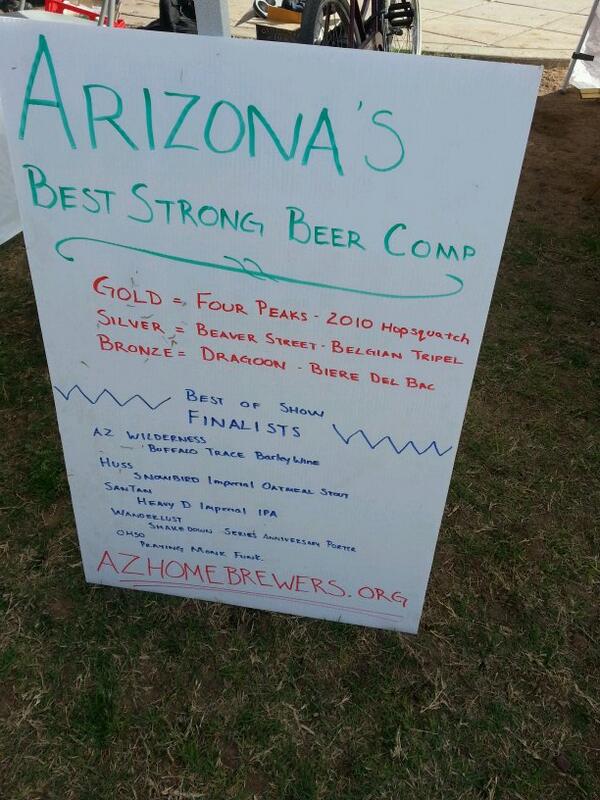 ARIZONA'S
BEST STRONG BEER COMP
GOLD = FOUR PEAKS - 2010 Hopsquatch
SILVER = BEAVER STREET - BELGIAN TRIPEL
BRONZE = DRAGOON - BIERE DEL BAC
BEST OF SHOW
FINALISTS
AZ WILDERNESS
BUFFALO TRACE BarleyWine
HUSS
SNOWBIRD Imperial OATMEAL STOUT
SANTAN
HEAVY D Imperial IPA
WANDERLUST
SHAKEDOWN SERIES ANNIVERSARY PORTER
OHSO
PRAYING MONK FUNK
AZHOMEBREWERS.ORG